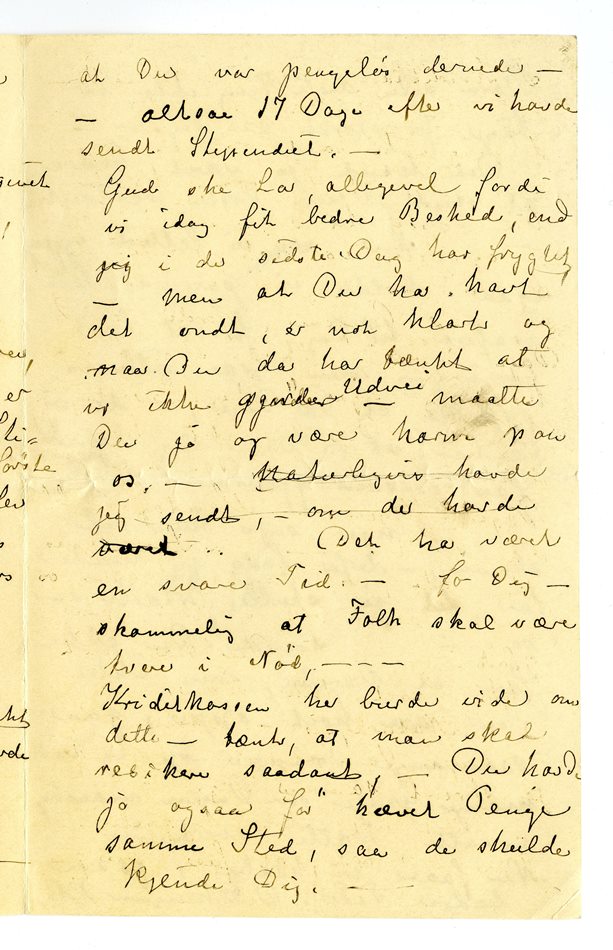 at Du var pengeløs dernede —
— altsaa 17 Dage efter vi havde
sendt Stipendiet. —
Gud ske Lov, allegevel fordi
vi idag fik bedre Beskjed, end
jeg i de sidste Dag har frygtet,
— men at Du har havt
det ondt, er nok klart og
naar Du da har tænkt at
vi ikke gjorde Udvei — maatte
Du jo og være harm paa
os, — Naturligvis havde
jeg sendt, — om der havde
været .. Det har været
en svare Tid — for Dig —
skammelig at Folk skal være
tvere i Nød, — — —
Kriditkassen her burde vide om
dette — tænk, at man skal
resikere saadant, — Du havde
jo ogsaa før hævet Penge
samme Sted, saa de skulde
kjende Dig. — —